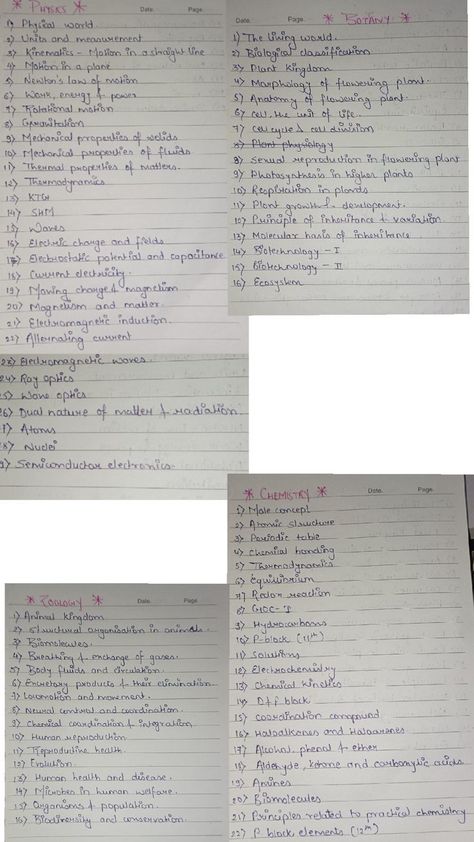 * PHYSICS * Date. Page.
1) Physical world.
2) Units and measurement
3) Kinematics - Motion in a straight line
4) Motion in a plane
5) Newton's law of motion
6) Work, energy & power
7) Rotational motion
8) Gravitation
9) Mechanical properties of solids
10) Mechanical properties of fluids
11) Thermal properties of matters.
12) Thermodynamics
13) KTG
14) SHM
15) Waves
16) Electric charge and fields
17) Electrostatic potential and capacitance
18) Current electricity.
19) Moving charge & magnetism
20) Magnetism and matter.
21) Electromagnetic induction.
22) Alternating current
23) Electromagnetic waves.
24) Ray optics
25) Wave optics
26) Dual nature of matter & radiation
27) Atoms
28) Nuclei
29) Semiconductor electronics.
* BOTANY * Date. Page.
1) The living world.
2) Biological classification
3) Plant kingdom
4) Morphology of flowering plant.
5) Anatomy of flowering plant.
6) cell, the unit of life.
7) cell cycle & cell division
8) Plant physiology
8) Sexual reproduction in flowering plant
9) Photosynthesis in higher plants
10) Respiration in plants
11) Plant growth & development.
12) Principle of inheritance & variation.
13) Molecular basis of inheritance
14) Biotechnology - I
15) Biotechnology - II
16) Ecosystem
* ZOOLOGY * Date. Page.
1) Animal kingdom
2) Structural organisation in animals.
3) Biomolecules.
4) Breathing & exchange of gases.
5) Body fluids and circulation.
6) Excretory products & their elimination.
7) Locomotion and movement.
8) Neural control and coordination.
9) Chemical coordination & integration.
10) Human reproduction
11) Reproductive health.
12) Evolution.
13) Human health and disease.
14) Microbes in human welfare.
15) Organisms & population.
16) Biodiversity and conservation.
* CHEMISTRY * Date. Page.
1) Mole concept
2) Atomic structure
3) Periodic table
4) Chemical bonding
5) Thermodynamics
6) Equilibrium
7) Redox reaction
8) GOC-I
9) Hydrocarbons
10) P-block (11th)
11) Solutions
12) Electrochemistry
13) Chemical kinetics
14) D & f block
15) coordination compound
16) Haloalkenes and Haloarenes
17) Alcohol, phenol & ether
18) Aldehyde, ketone and carboxylic acids
19) Amines
20) Biomolecules
21) Principles related to practical chemistry
22) P block elements (12th)